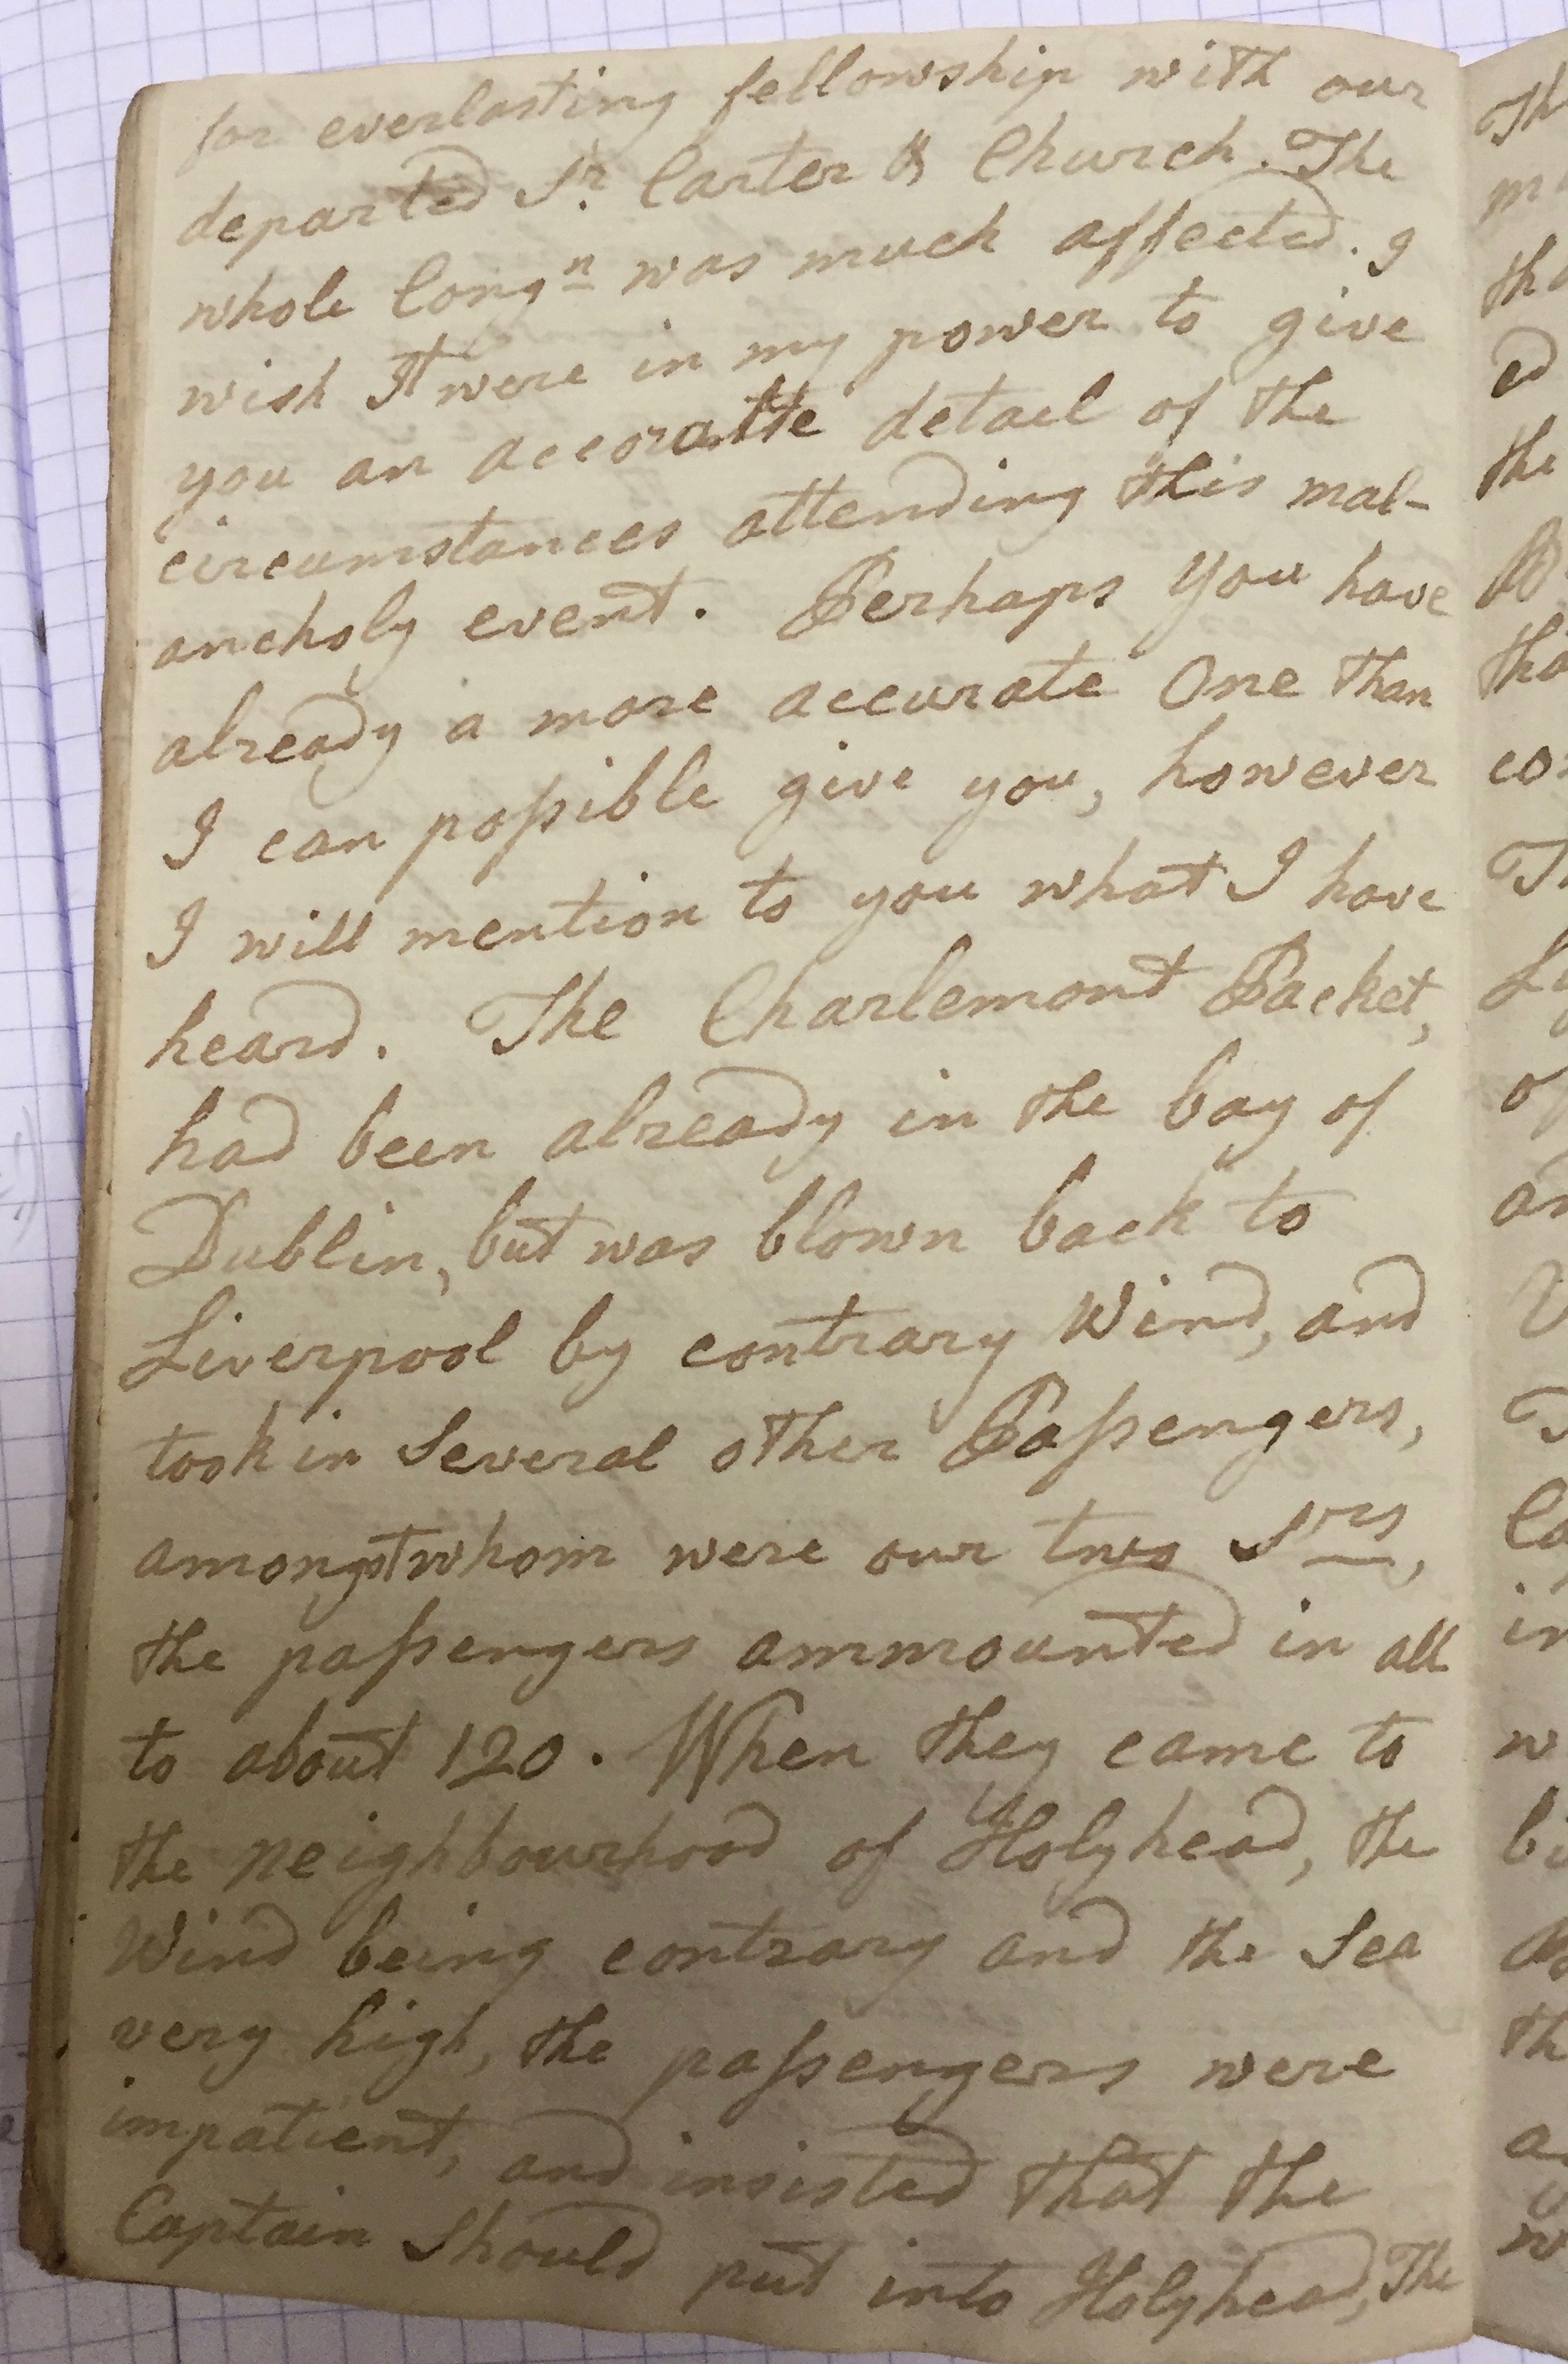 for everlasting fellowship with our
departed Sr. Carter & Church. The
whole Congn was much affected. I
wish It were in my power to give
you an accoratte detael of the
circumstances attending this mal-
ancholy event. Perhaps You have
already a more accurate One than
I can possible give you, however
I will mention to you what I have
heard. The Charlemont Packet,
had been already in the bay of
Dublin, but was blown back to
Liverpool by contrary Wind, and
took in Several other Passengers,
amongst whom were our two Srs,
the passengers ammounted in all
to about 120. When they came to
the neighbourhood of Holyhead, the
Wind being contrary and the Sea
very high, the passengers were
impatient, and insisted that the
Captain Should put into Holyhead, The